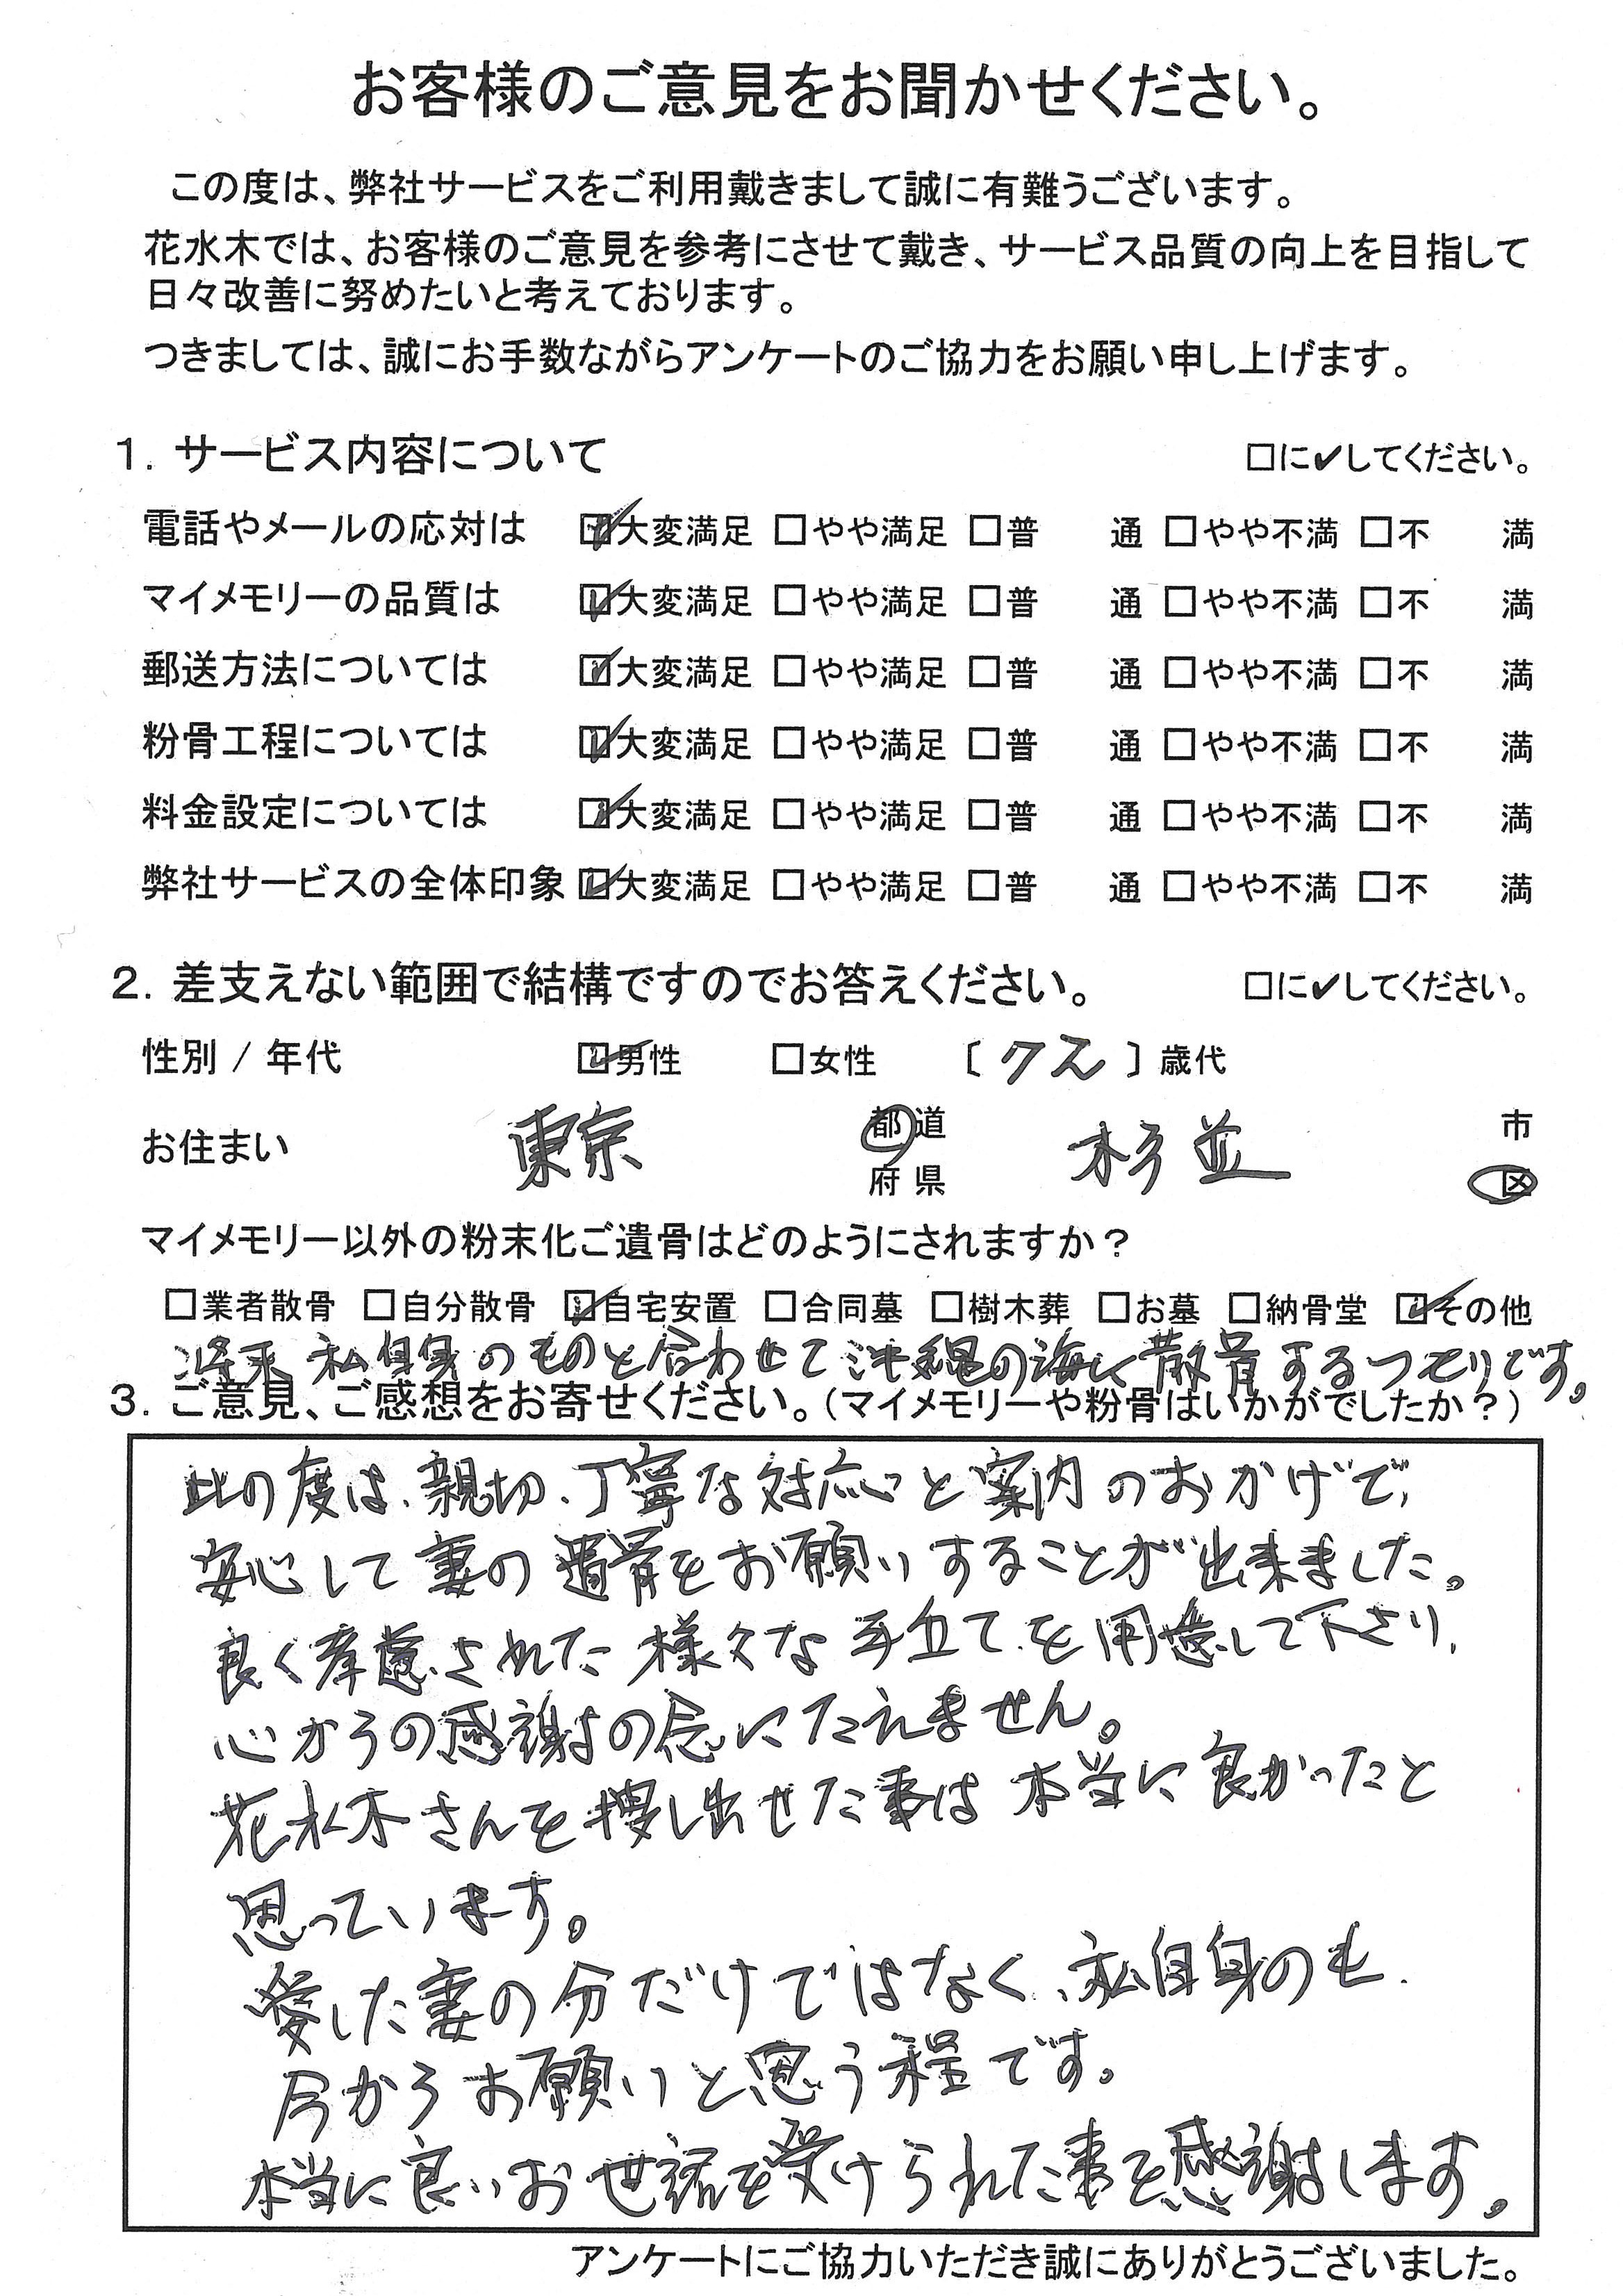 お客様のご意見をお聞かせください。
この度は、弊社サービスをご利用戴きまして誠に有難うございます。
花水木では、お客様のご意見を参考にさせて戴き、サービス品質の向上を目指して
日々改善に努めたいと考えております。
つきましては、誠にお手数ながらアンケートのご協力をお願い申し上げます。
1. サービス内容について □に✔してください。
電話やメールの応対は ☑大変満足 □やや満足 □普 通 □やや不満 □不 満
マイメモリーの品質は ☑大変満足 □やや満足 □普 通 □やや不満 □不 満
郵送方法については ☑大変満足 □やや満足 □普 通 □やや不満 □不 満
粉骨工程については ☑大変満足 □やや満足 □普 通 □やや不満 □不 満
料金設定については ☑大変満足 □やや満足 □普 通 □やや不満 □不 満
弊社サービスの全体印象 ☑大変満足 □やや満足 □普 通 □やや不満 □不 満
2. 差支えない範囲で結構ですのでお答えください。 □に✔してください。
性別 / 年代 ☑男性 □女性 〔 〕歳代
お住まい 東京 都道府県 杉並 市区
マイメモリー以外の粉末化ご遺骨はどのようにされますか？
□業者散骨 □自分散骨 ☑自宅安置 □合同墓 □樹木葬 □お墓 □納骨堂 ☑その他
将来私自身のものと合わせて沖縄の海に散骨するつもりです。
3. ご意見、ご感想をお寄せください。（マイメモリーや粉骨はいかがでしたか？）
此の度は、親切、丁寧な対応と案内のおかげで、
安心して妻の遺骨をお願いすることが出来ました。
良く考慮された様々な手立てを用意して下さり、
心からの感謝の念にたえません。
花水木さんを捜し出せた事は本当に良かったと
思っています。
愛した妻の分だけではなく、私自身のも
今からお願いと思う程です。
本当に良いお世話を受けられた事を感謝します。
アンケートにご協力いただき誠にありがとうございました。